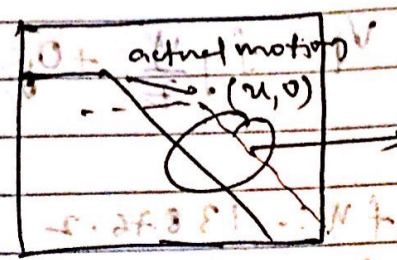 actual motion
(u,v)